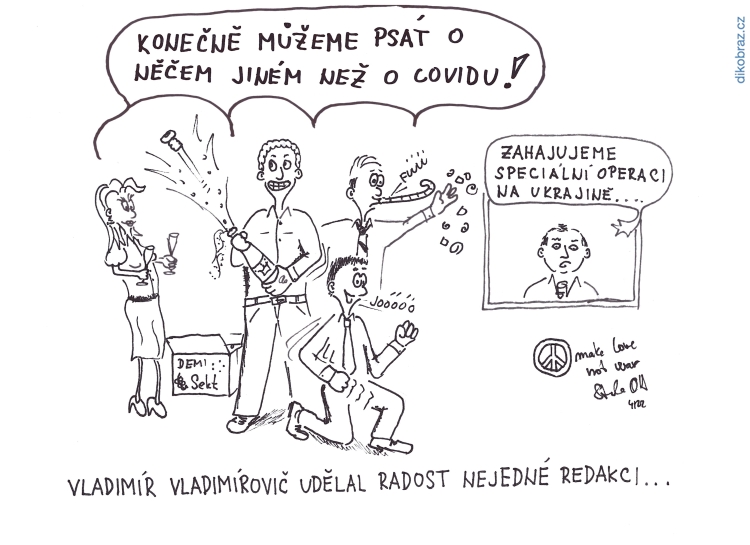 dikobraz.cz
KONEČNĚ MŮŽEME PSÁT O
NĚČEM JINÉM NEŽ O COVIDU!
FUUU
ZAHAJUJEME
SPECIÁLNÍ OPERACI
NA UKRAJINĚ....
JOOOOO
DEMI
Sekt
make love
not war
4/22
VLADIMÍR VLADIMÍROVIČ UDĚLAL RADOST NEJEDNÉ REDAKCI...